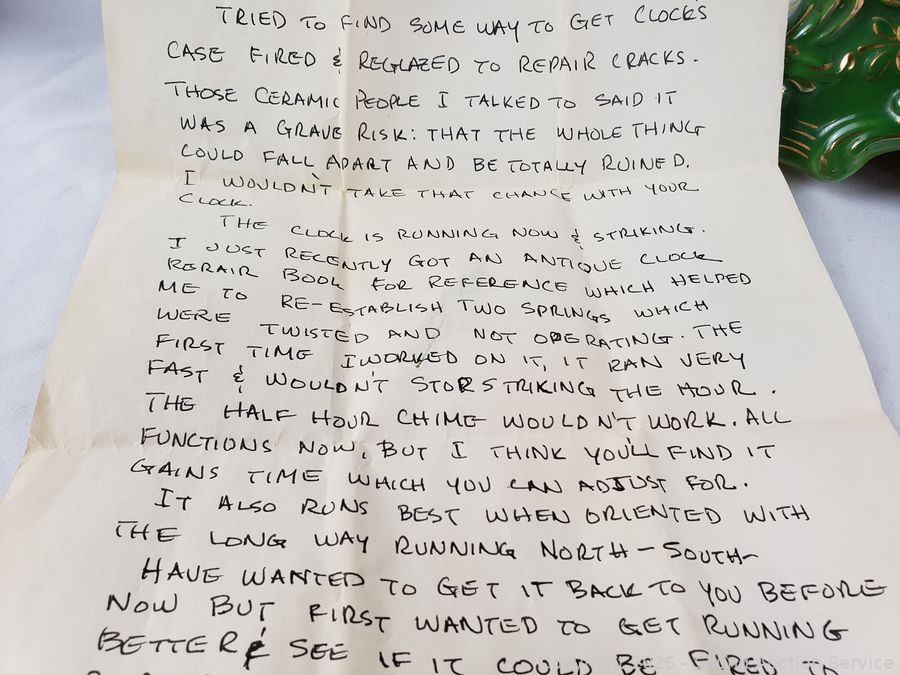 TRIED TO FIND SOME WAY TO GET CLOCK'S
CASE FIRED & REGLAZED TO REPAIR CRACKS.
THOSE CERAMIC PEOPLE I TALKED TO SAID IT
WAS A GRAVE RISK: THAT THE WHOLE THING
COULD FALL APART AND BE TOTALLY RUINED.
I WOULDN'T TAKE THAT CHANCE WITH YOUR
CLOCK.
THE CLOCK IS RUNNING NOW & STRIKING.
I JUST RECENTLY GOT AN ANTIQUE CLOCK
REPAIR BOOK FOR REFERENCE WHICH HELPED
ME TO RE-ESTABLISH TWO SPRINGS WHICH
WERE TWISTED AND NOT OPERATING. THE
FIRST TIME I WORKED ON IT, IT RAN VERY
FAST & WOULDN'T STOP STRIKING THE HOUR.
THE HALF HOUR CHIME WOULDN'T WORK. ALL
FUNCTIONS NOW, BUT I THINK YOU'LL FIND IT
GAINS TIME WHICH YOU CAN ADJUST FOR.
IT ALSO RUNS BEST WHEN ORIENTED WITH
THE LONG WAY RUNNING NORTH-SOUTH-
HAVE WANTED TO GET IT BACK TO YOU BEFORE
NOW BUT FIRST WANTED TO GET RUNNING
BETTER & SEE IF IT COULD BE FIRED
Auction Service